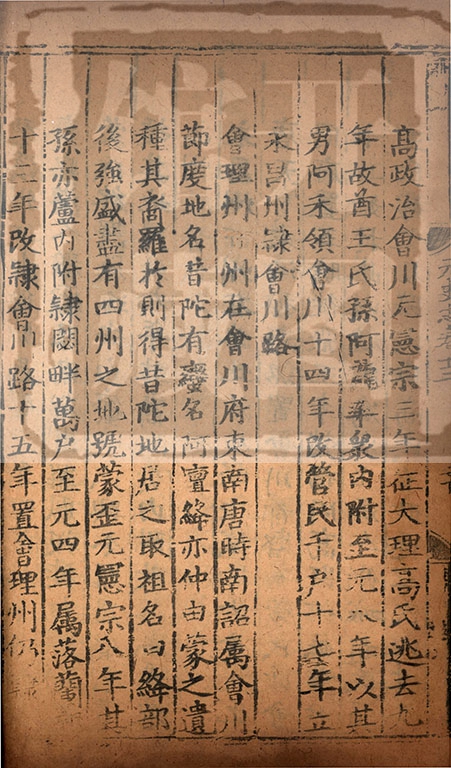 高政治會川元憲宗三年征大理高氏逃去九
年故酋王氏孫阿龍率衆內附至元八年以其
男阿禾領會川十四年改管民千户十七年立
永昌州隸會川路
會理州州在會川府東南唐時南詔屬會川
節度地名昔陀有蠻名阿壇絳亦仲由蒙之遺
種其裔羅於則得昔陀地居之取祖名曰絳部
後強盛盡有四州之地號蒙歪元憲宗八年其
孫亦蘆內附隸閟畔萬户至元四年属落蘭
十二年改隸會川路十五年置會理州仍隸